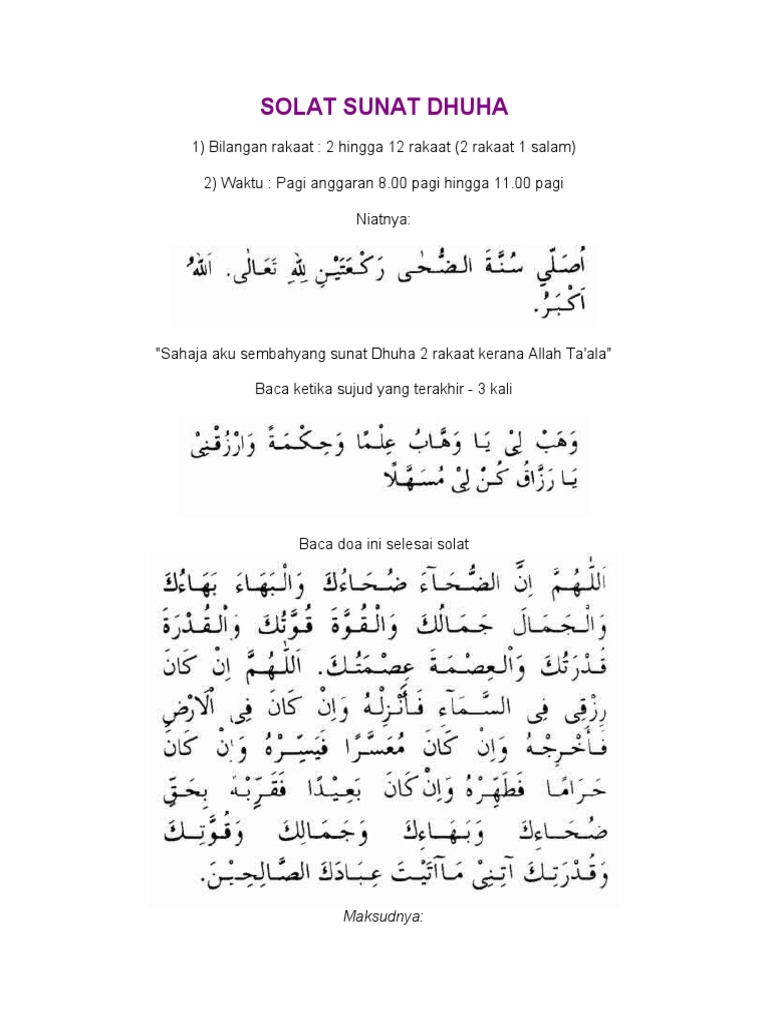 SOLAT SUNAT DHUHA
1) Bilangan rakaat : 2 hingga 12 rakaat (2 rakaat 1 salam)
2) Waktu : Pagi anggaran 8.00 pagi hingga 11.00 pagi
Niatnya:
اُصَلِّي سُنَّةَ الضُّحٰى رَكْعَتَيْنِ لِلّٰهِ تَعَالٰى. اَللهُ
اَكْبَرُ.
"Sahaja aku sembahyang sunat Dhuha 2 rakaat kerana Allah Ta'ala"
Baca ketika sujud yang terakhir - 3 kali
وَهَبْ لِيْ يَا وَهَّابُ عِلْمًا وَحِكْمَةً وَارْزُقْنِيْ
يَا رَزَّاقُ كُنْ لِيْ مُسَهَّلًا
Baca doa ini selesai solat
اَللّٰهُمَّ اِنَّ الضُّحَآءَ ضُحَاءُكَ وَالْبَهَاءَ بَهَاءُكَ
وَالْجَمَالَ جَمَالُكَ وَالْقُوَّةَ قُوَّتُكَ وَالْقُدْرَةَ
قُدْرَتُكَ وَالْعِصْمَةَ عِصْمَتُكَ. اَللّٰهُمَّ اِنْ كَانَ
رِزْقِى فِى السَّمَآءِ فَأَنْزِلْهُ وَاِنْ كَانَ فِى الْاَرْضِ
فَأَخْرِجْهُ وَاِنْ كَانَ مُعَسَّرًا فَيَسِّرْهُ وَاِنْ كَانَ
حَرَامًا فَطَهِّرْهُ وَاِنْ كَانَ بَعِيْدًا فَقَرِّبْهُ بِحَقِّ
ضُحَاءِكَ وَبَهَاءِكَ وَجَمَالِكَ وَقُوَّتِكَ
وَقُدْرَتِكَ آتِنِىْ مَآاَتَيْتَ عِبَادَكَ الصَّالِحِيْنَ.
Maksudnya: